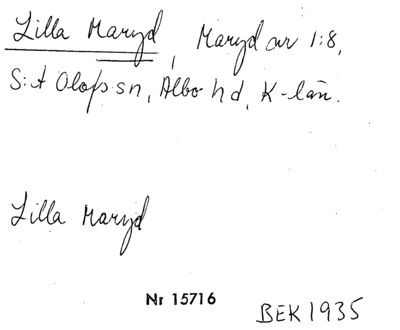 Lilla Maryd, Maryd av 1:8,
S:t Olofs sn, Albo hd, K-län.
Lilla Maryd
Nr 15716
BEK 1935